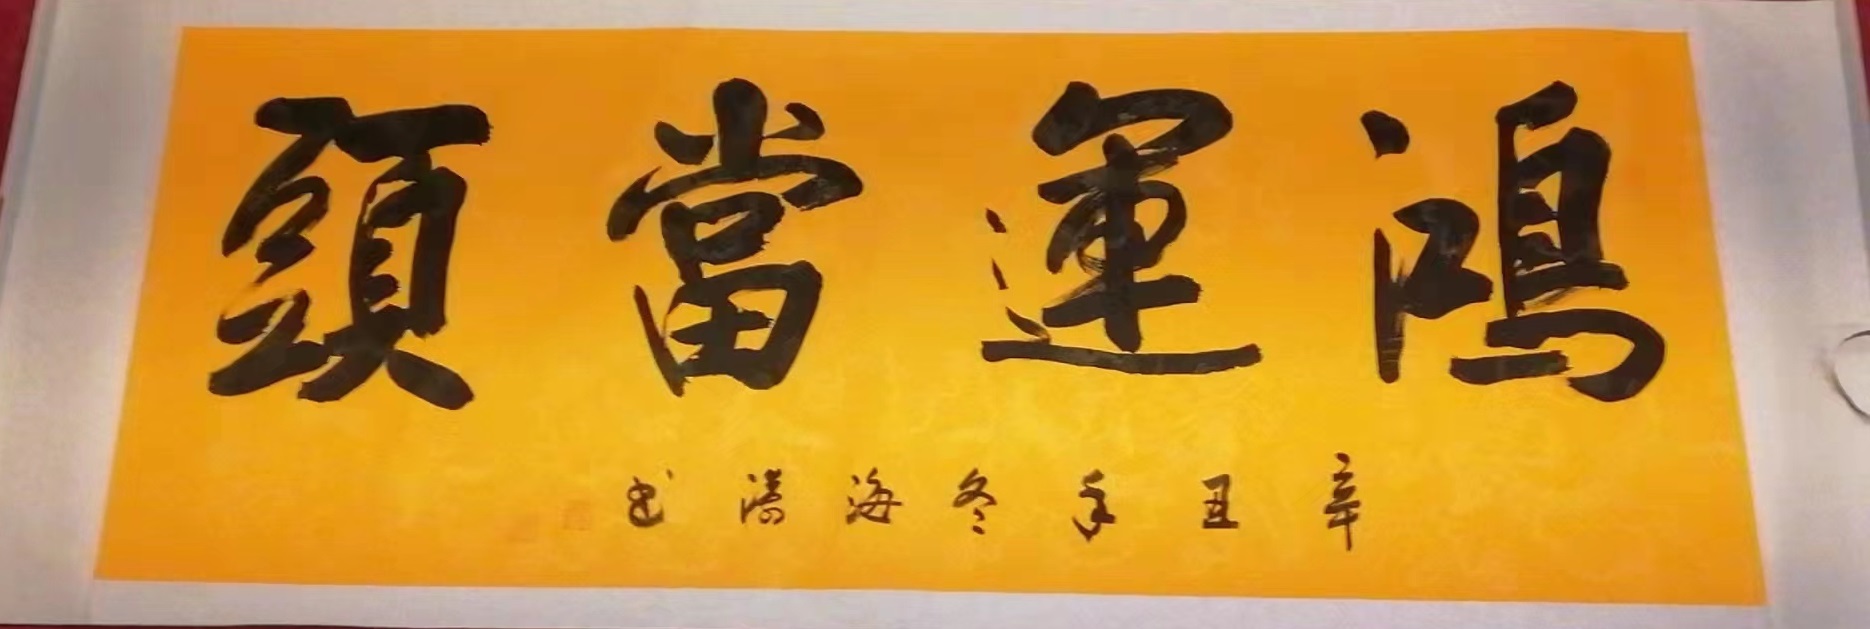 鴻運當頭
辛丑年冬海濤书